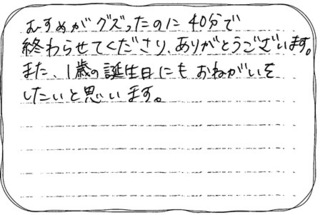 むすめがグズったのに40分で
終わらせてくださり、ありがとうございます。
また、1歳の誕生日にもおねがいを
したいと思います。